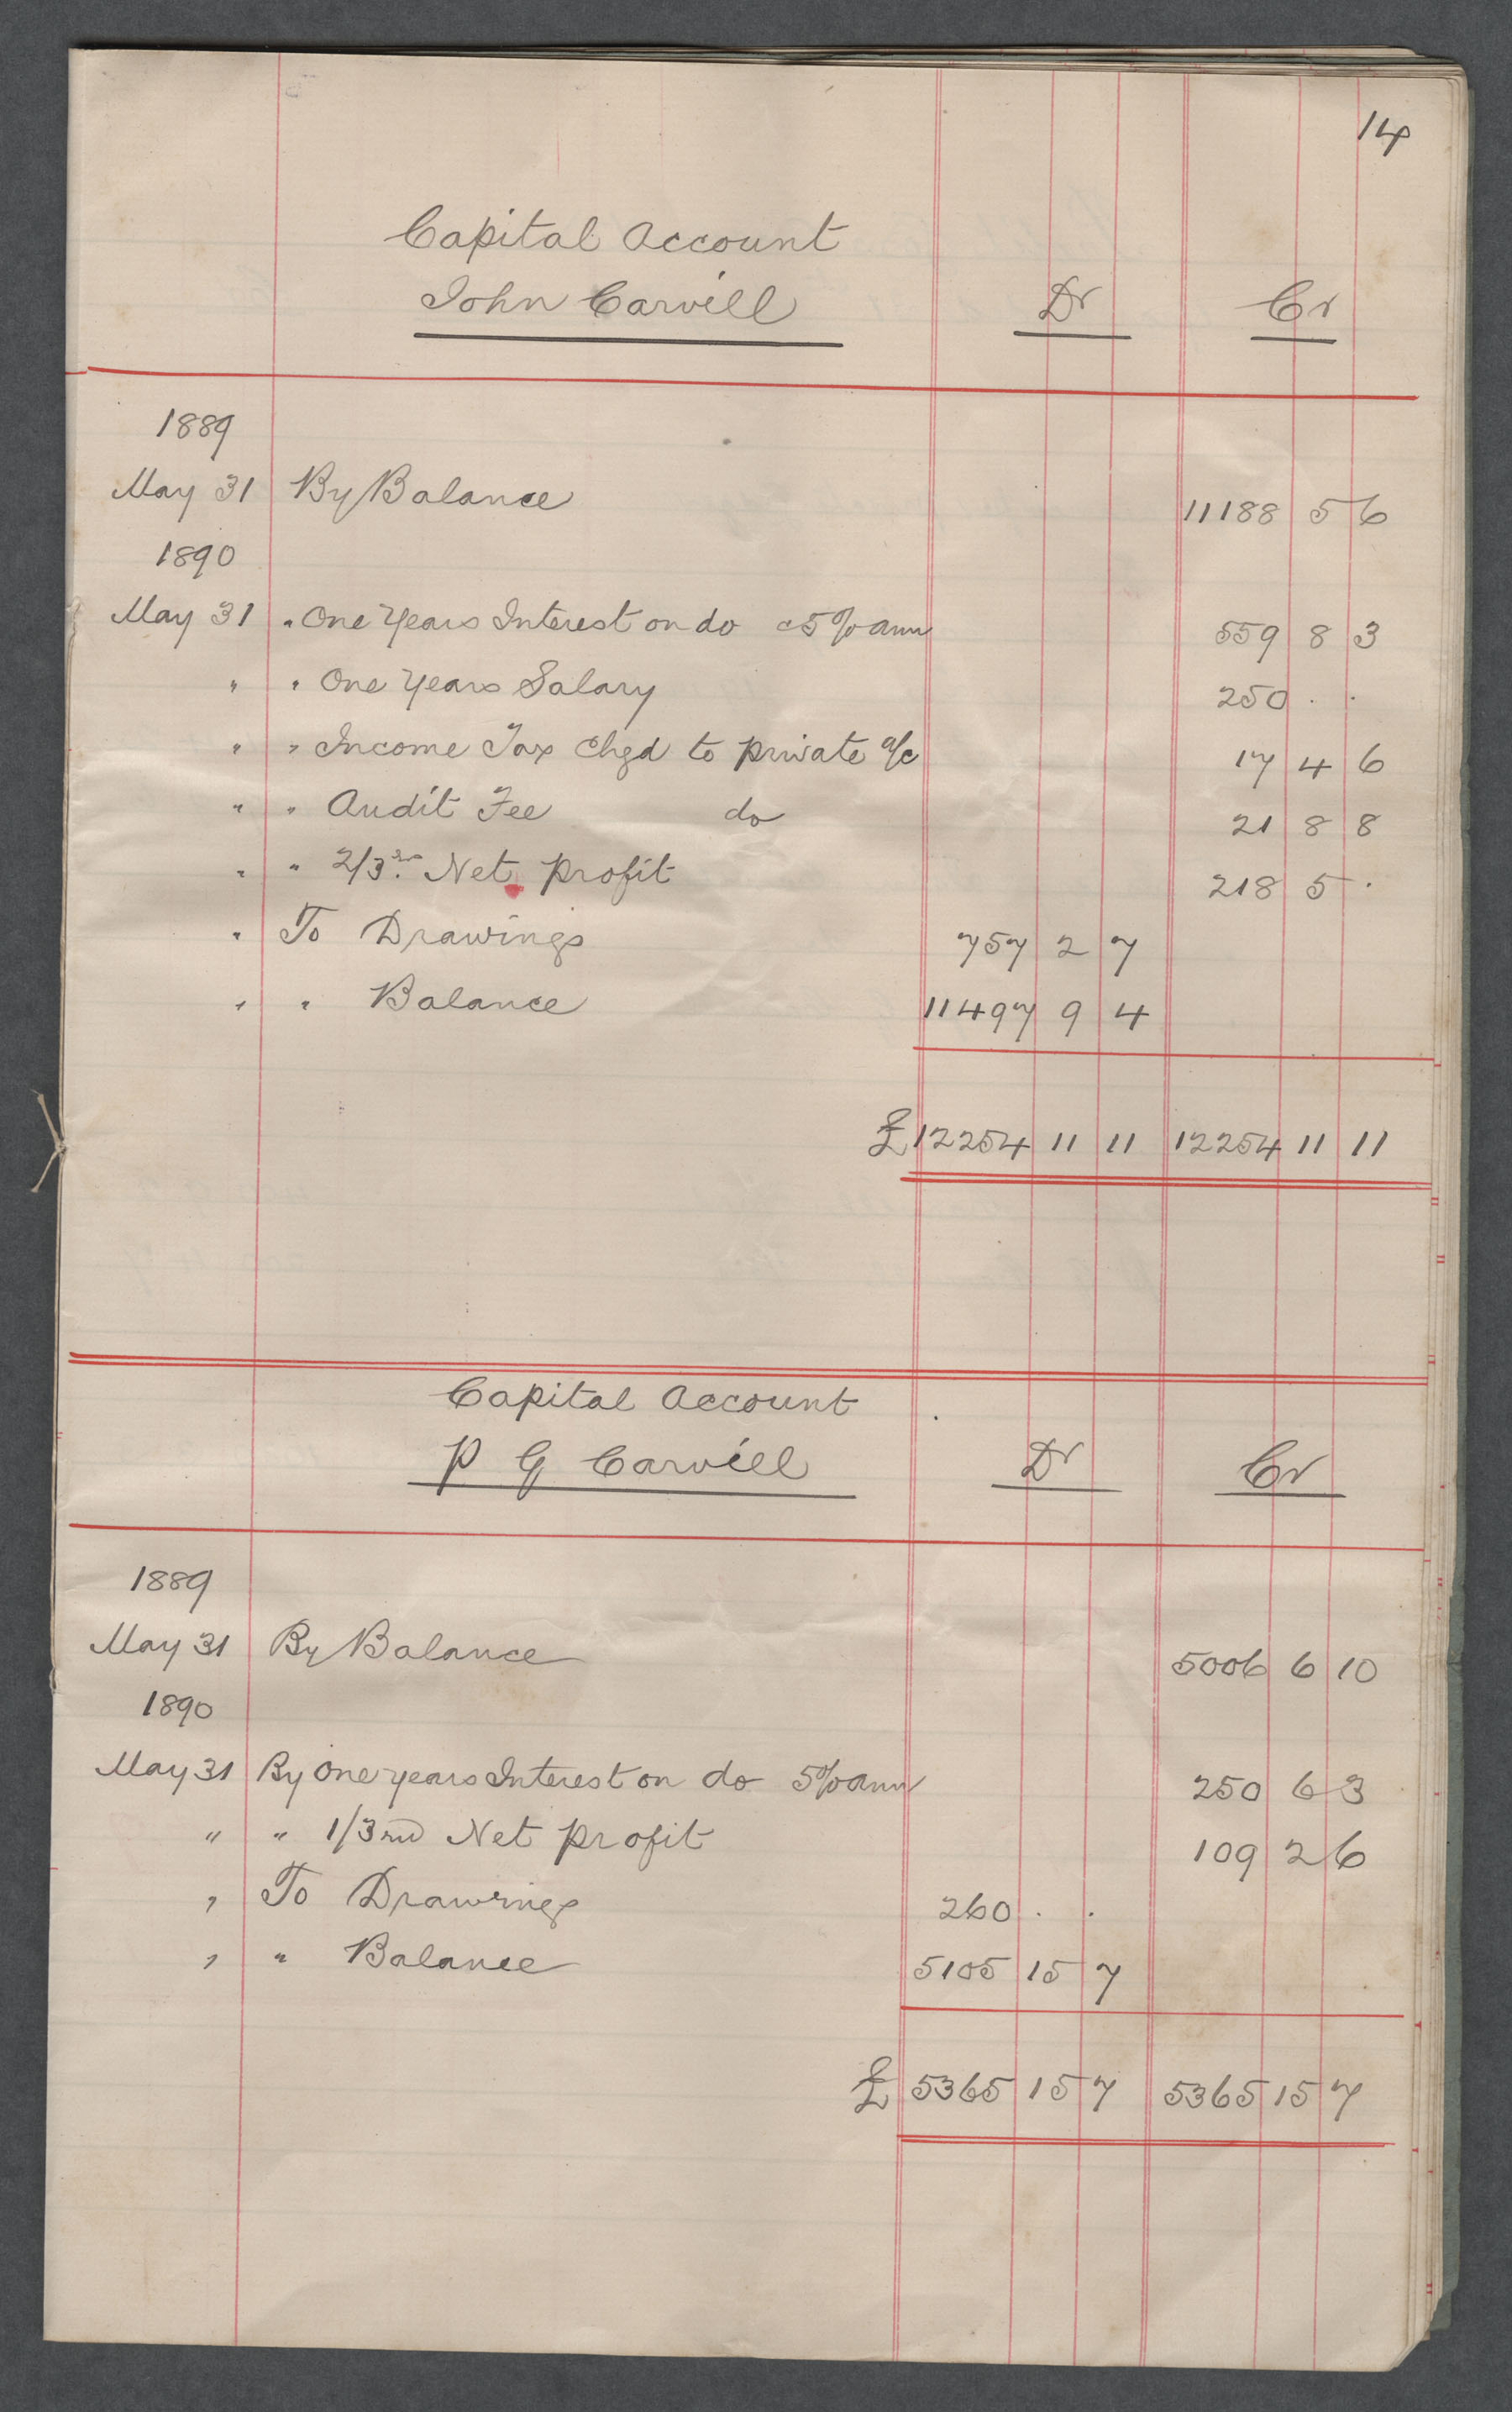 14
Capital Account
John Carvill Dr Cr
1889
May 31 By Balance 11188 5 6
1890
May 31 " One Years Interest on do 5% ann 559 8 3
" " One Years Salary 250 . .
" " Income Tax Chgd to private a/c 17 4 6
" " Audit Fee do 21 8 8
" " 2/3rds Net profit 218 5 .
" To Drawings 757 2 7
" " Balance 11497 9 4
£ 12254 11 11 12254 11 11
Capital Account
P G Carvill Dr Cr
1889
May 31 By Balance 5006 6 10
1890
May 31 By One years Interest on do 5% ann 250 6 3
" " 1/3rd Net profit 109 2 6
" To Drawings 260 . .
" " Balance 5105 15 7
£ 5365 15 7 5365 15 7